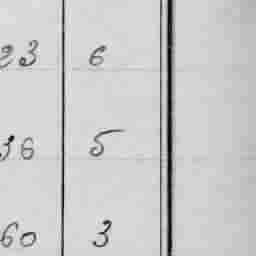 23 6
36 5
60 3